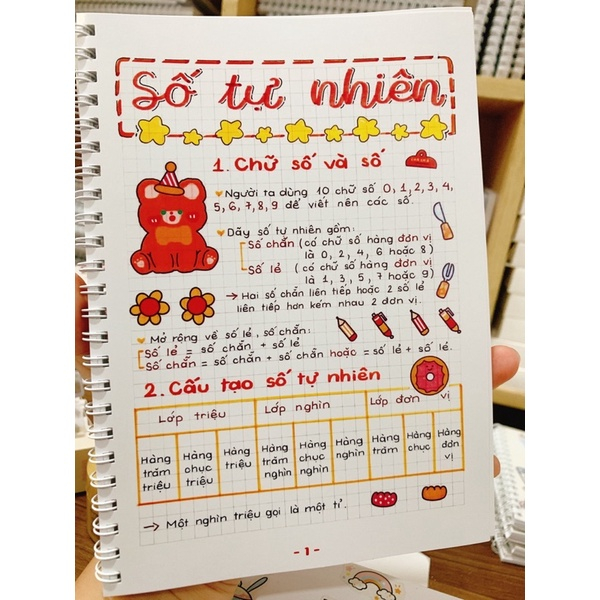 Số tự nhiên
1. Chữ số và số
Người ta dùng 10 chữ số 0, 1, 2, 3, 4,
5, 6, 7, 8, 9 để viết nên các số.
Dãy số tự nhiên gồm:
Số chẵn (có chữ số hàng đơn vị
là 0, 2, 4, 6 hoặc 8)
Số lẻ (có chữ số hàng đơn vị
là 1, 3, 5, 7 hoặc 9)
→ Hai số chẵn liên tiếp hoặc 2 số lẻ
liên tiếp hơn kém nhau 2 đơn vị.
Mở rộng về số lẻ, số chẵn:
Số lẻ = số chẵn + số lẻ
Số chẵn = số chẵn + số chẵn hoặc = số lẻ + số lẻ.
2. Cấu tạo số tự nhiên
Lớp triệu Lớp nghìn Lớp đơn vị
Hàng trăm triệu
Hàng chục triệu
Hàng triệu
Hàng trăm nghìn
Hàng chục nghìn
Hàng nghìn
Hàng trăm
Hàng chục
Hàng đơn vị
→ Một nghìn triệu gọi là một tỉ.
- 1 -